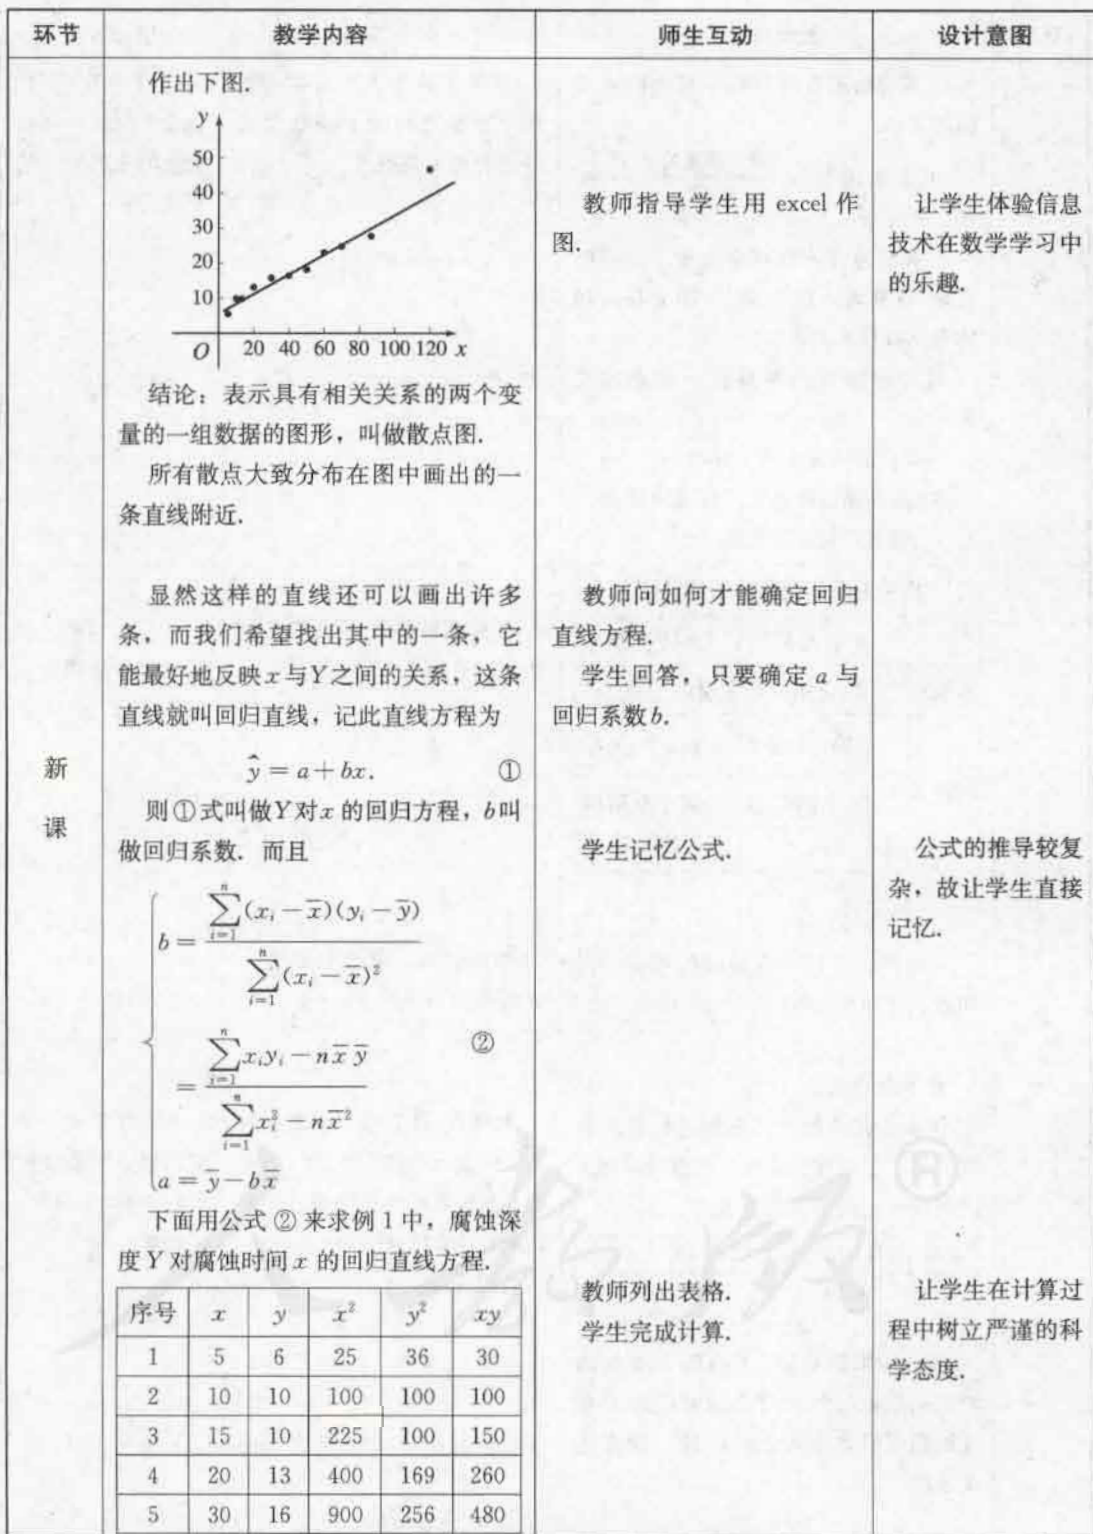 环节 教学内容 师生互动 设计意图
作出下图.
y
50
40
30
20
10
O 20 40 60 80 100 120 x
结论：表示具有相关关系的两个变
量的一组数据的图形，叫做散点图.
所有散点大致分布在图中画出的一
条直线附近.
显然这样的直线还可以画出许多
条，而我们希望找出其中的一条，它
能最好地反映x与Y之间的关系，这条
直线就叫回归直线，记此直线方程为
ŷ = a + bx. ①
则①式叫做Y对x的回归方程，b叫
做回归系数. 而且
b = \frac{\sum_{i=1}^{n}(x_i - \overline{x})(y_i - \overline{y})}{\sum_{i=1}^{n}(x_i - \overline{x})^2}
= \frac{\sum_{i=1}^{n}x_iy_i - n\overline{x}\,\overline{y}}{\sum_{i=1}^{n}x_i^2 - n\overline{x}^2} ②
a = \overline{y} - b\overline{x}
下面用公式②来求例1中，腐蚀深
度Y对腐蚀时间x的回归直线方程.
序号 x y x² y² xy
1 5 6 25 36 30
2 10 10 100 100 100
3 15 10 225 100 150
4 20 13 400 169 260
5 30 16 900 256 480
教师指导学生用 excel 作
图.
教师问如何才能确定回归
直线方程.
学生回答，只要确定 a 与
回归系数b.
学生记忆公式.
教师列出表格.
学生完成计算.
让学生体验信息
技术在数学学习中
的乐趣.
公式的推导较复
杂，故让学生直接
记忆.
让学生在计算过
程中树立严谨的科
学态度.
新
课
人教版®